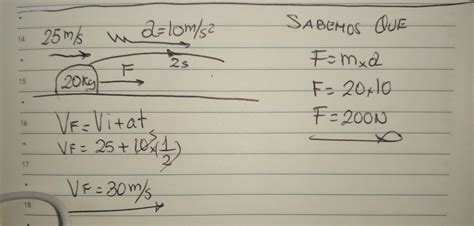 14
25m/s a=10m/s²
2s
F
15
20kg
16
VF=Vi+at
VF=25+10x(1/2)
17
VF=30m/s
18
SABEMOS QUE
F=mxa
F=20x10
F=200N